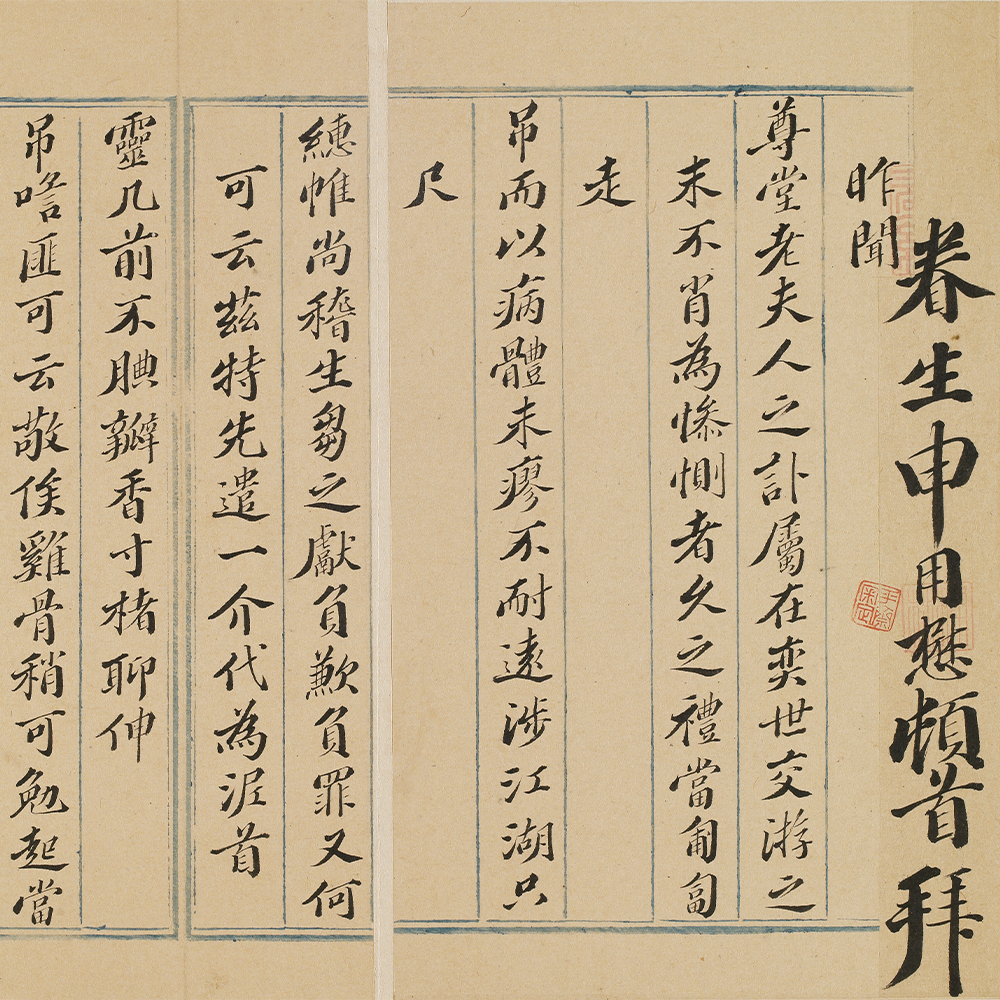 眷生申用懋頓首拜
昨聞
尊堂老夫人之訃屬在奕世交游之
末不肖為慘惻者久之禮當匍匐
走
吊而以病體未瘳不耐遠涉江湖只
尺
繐帷尚稽生芻之獻負歉負罪又何
可云茲特先遣一介代為泥首
靈几前不腆瓣香寸楮聊伸
吊唁匪可云敬俟雞骨稍可勉起當